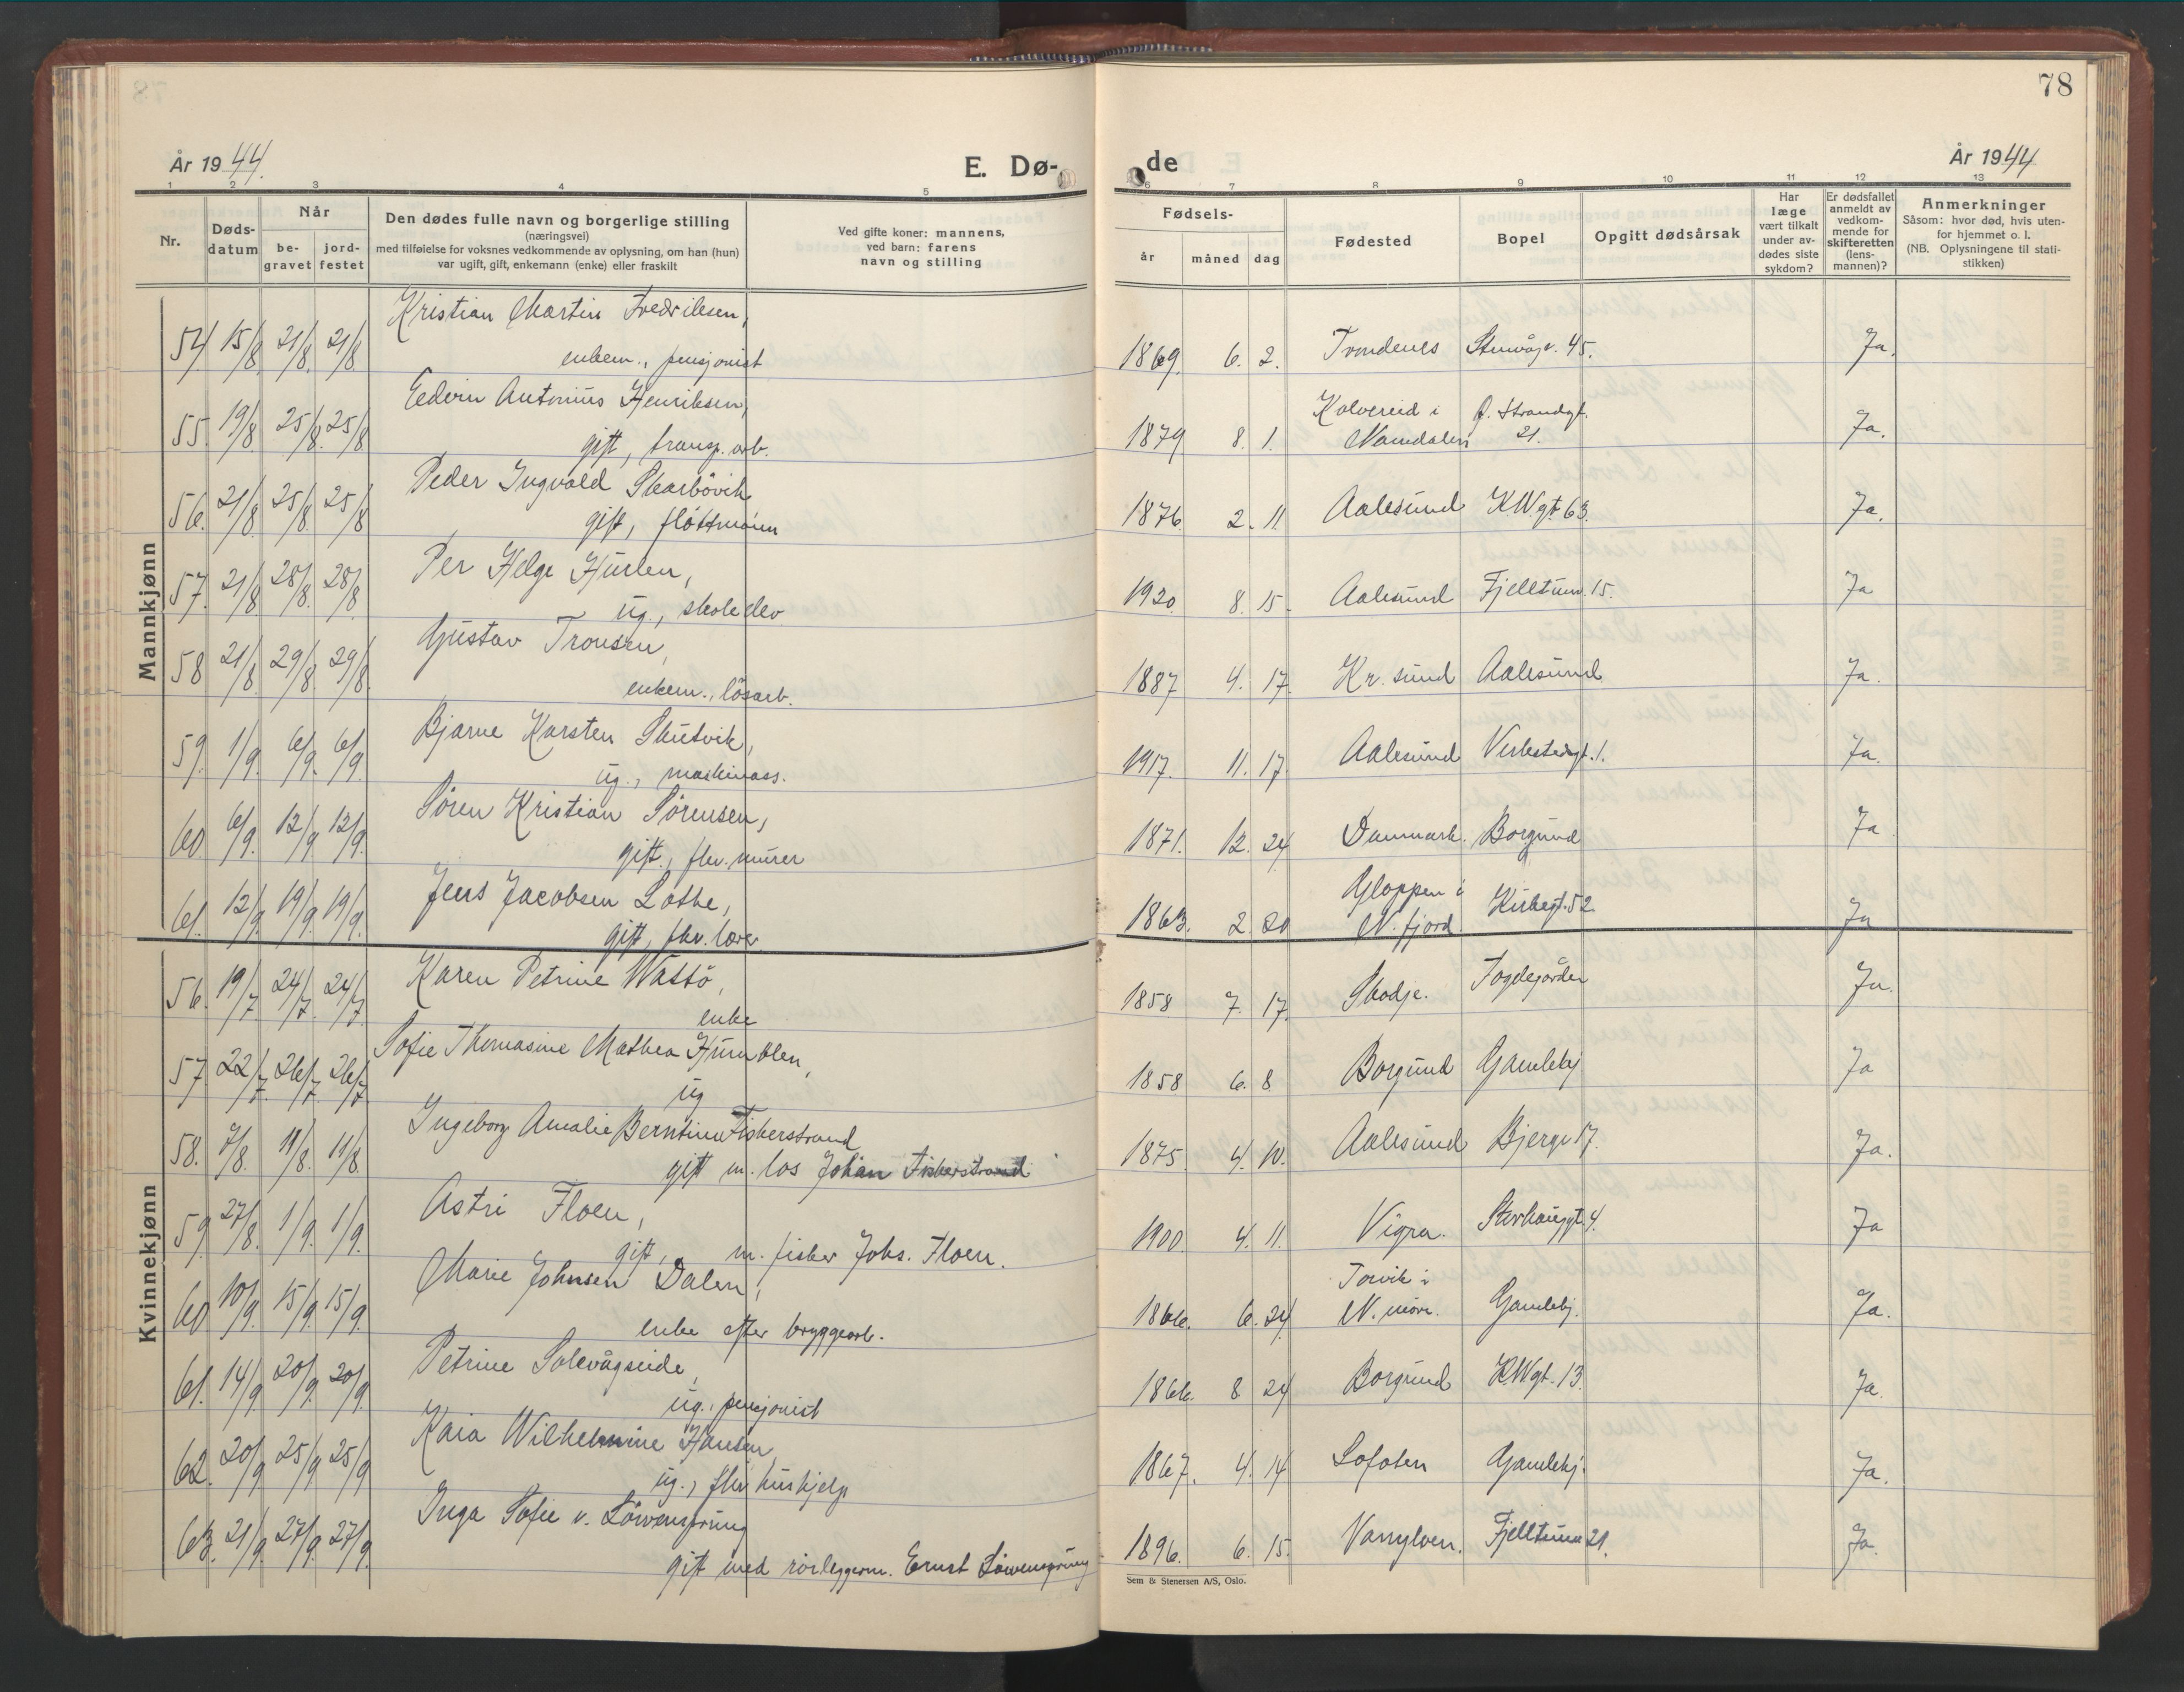 78
År 1944.
E. Dø-
de
År 1944
1 2 3 4 5 6 7 8 9 10 11 12 13
Nr.
Døds-
datum
Når
be-
gravet
jord-
festet
Den dødes fulle navn og borgerlige stilling
(næringsvei)
med tilføielse for voksnes vedkommende av oplysning, om han (hun)
var ugift, gift, enkemann (enke) eller fraskilt
Ved gifte koner: mannens,
ved barn: farens
navn og stilling
Fødsels-
år måned dag
Fødested
Bopel
Opgitt dødsårsak
Har
læge
vært tilkalt
under av-
dødes siste
sykdom?
Er dødsfallet
anmeldt av
vedkom-
mende for
skifteretten
(lens-
mannen)?
Anmerkninger
Såsom: hvor død, hvis uten-
for hjemmet o. l.
(NB. Oplysningene til stati-
stikken)
Mannkjønn
Kristian Martin Fredriksen,
54. 15/8. 21/8. 21/8. enkem., pensjonist 1869. 6. 2. Trondenes 45. Ja.
Edvin Antonius Henriksen,
55. 19/8. 25/8. 25/8 gift, transp. arb. 1879 8. 1. Kolvereid i Namdalen Ø. Strandgt. 21. Ja.
Peder Ingvald Skarbövik
56. 21/8. 25/8. 25/8 gift, flöttmann 1876. 2. 11. Aalesund K.W.gt 63. Ja.
Per Helge Hurlen,
57. 21/8. 28/8. 28/8. ug., skoleelev 1920. 8. 15. Aalesund Fjelltunv. 15. Ja
Gustav Tronsen,
58 21/8. 29/8. 29/8. enkem., lösarb. 1887 4. 17. Kr. sund Aalesund Ja.
Bjarne Karsten Skutvik,
59. 1/9. 6/9. 6/9. ug., maskinass. 1917. 11. 17. Aalesund Verkstedgt. 1. Ja.
Sören Kristian Sörensen,
60 6/9. 12/9. 12/9. gift., fhv. murer 1871. 12. 24 Danmark. Borgund Ja
Jens Jacobsen Lothe,
61. 12/9. 19/9. 19/9. gift, fhv. lærer 1863. 2. 20 Gloppen i N. fjord Kirkegt. 52 Ja
Kvinnekjønn
Karen Petrine Wattö,
56. 19/7. 24/7. 24/7. enke 1858 7. 17. Skodje. Fogdegården Ja.
Sofie Thomasine Mathea Humblen,
57. 22/7. 26/7. 26/7 ug 1858 6. 8 Borgund Gamlehj. Ja
Ingeborg Amalie Berntine Fiskerstrand
58. 7/8. 11/8. 11/8 gift m. los Johan Fiskerstrand 1875. 4. 10. Aalesund Bjergv 17. Ja.
Astri Floen,
59. 27/8. 1/9. 1/9. gift, m. fisker Johs. Floen. 1900. 4. 11. Vigra. 4. Ja
Marie Johnsen Dalen,
60 10/9. 15/9. 15/9. enke efter bryggearb. 1866. 6. 24 Torvik i N. möre. Gamlehj. Ja.
Petrine Solevågseide,
61. 14/9. 20/9. 20/9. ug., pensjonist 1866. 8 24 Borgund K.W.gt. 13. Ja.
Kaia Wilhelmine Hansen,
62. 20/9 25/9. 25/9 ug., fhv hushjelp 1867. 4. 14 Lofoten Gamlehj. Ja.
Inga Sofie v. Löwensprung
63. 21/9. 27/9. 27/9. gift med rörleggerm. Ernst Löwensprung 1896. 6. 15. Vanylven. Fjelltunv 21. Ja.
Sem & Stenersen A/S, Oslo.